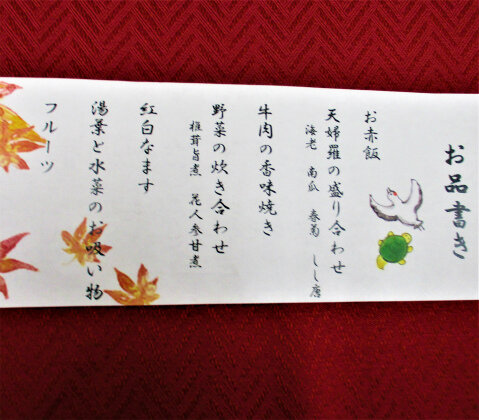 お品書き
お赤飯
天婦羅の盛り合わせ
海老 南瓜 春菊 しし唐
牛肉の香味焼き
野菜の炊き合わせ
椎茸旨煮 花人参甘煮
紅白なます
湯葉と水菜のお吸い物
フルーツ